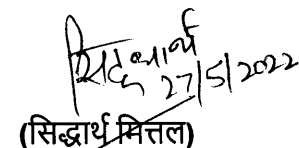 सिद्धार्थ
27/5/2022
(सिद्धार्थ मित्तल)